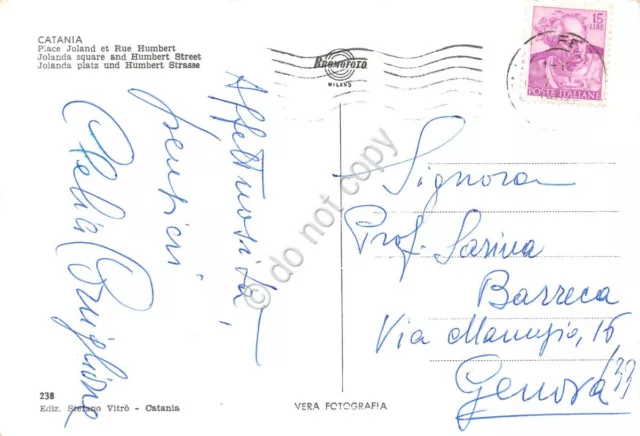 CATANIA
Place Joland et Rue Humbert
Jolanda square and Humbert Street
Jolanda platz und Humbert Strasse
BROMOFOTO
MILANO
15
LIRE
POSTE ITALIANE
Affettuosità,
pensieri
Clelia Coniglione
Signora
Prof. Sarina
Barreca
Via 16
Genova
do not copy
238
Ediz. Stefano Vitrò - Catania
VERA FOTOGRAFIA